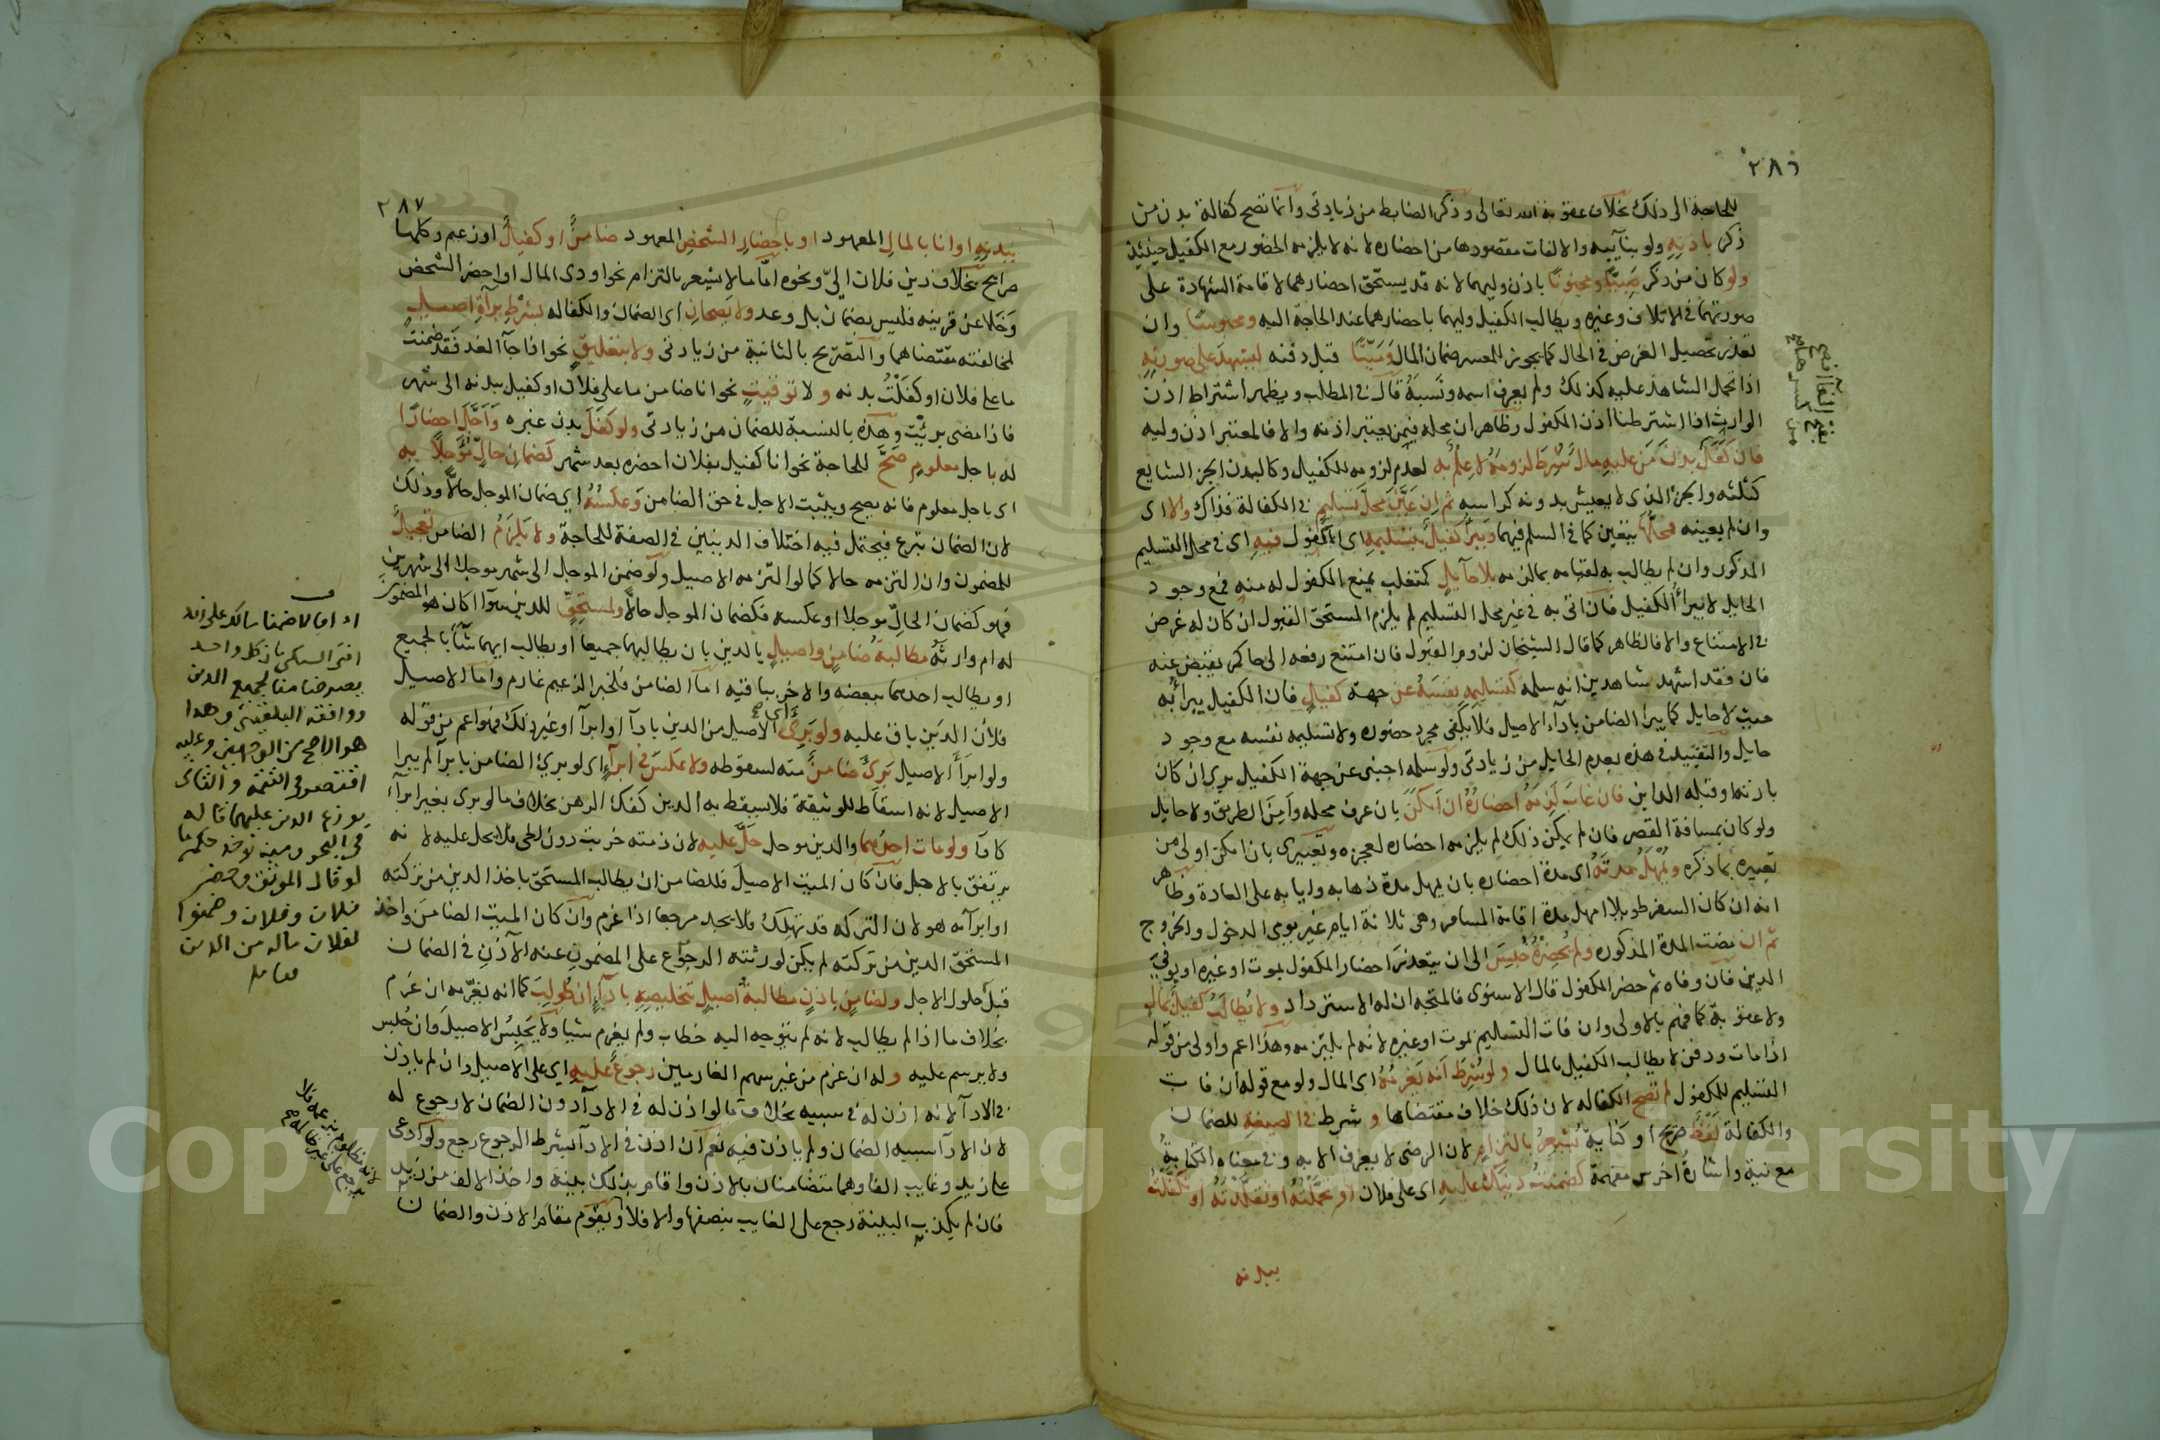 ٢٨٦
للحاجة الى ذلك بخلاف عقوبة الله تعالى وذكر الضابط من زيادتى وانما تصح كفالة بدن من
ذكر باذنه ولو بنايبه والا لفات مقصودها من احضاره لانه لا يلزمه الحضور مع الكفيل حينئذ
ولو كان من ذكر صبيا ومجنونا باذن وليهما لانه قد يستحق احضارهما لاقامة الشهادة على
صورتهما فى الاتلاف وغيره ويطالب الكفيل وليهما باحضارهما عند الحاجة اليه ومحبوسا وان
تعذر تحصيل الغرض فى الحال كما يجوز للمعسر ضمان المال وميتا قبل دفنه ليشهد على صورته
اذا تحمل الشاهد عليه كذلك ولم يعرف اسمه ونسبه قال فى المطلب ويظهر اشتراط اذن
الوارث اذا اشترطنا اذن المكفول وظاهر ان محله فيمن يعتبر اذنه والا فالمعتبر اذن وليه
فان كفل بدن من عليه مال شرط لزومه لا علم به لعدم لزومه للكفيل وكالبدن الجزء الشايع
كثلثه والجزء الذى لا يعيش بدونه كراسه ثم ان عين محل تسليم فى الكفالة فذاك والا اى
وان لم يعينه فمحلها يتعين كما فى السلم فيهما ويبرأ كفيل بتسليمه اى المكفول فيه اى فى محل التسليم
المذكور وان لم يطالب به لقيامه بما لزمه بلا حايل كمتغلب يمنع المكفول له منه فمع وجود
الحايل لا يبرأ الكفيل فان اتى به فى غير محل التسليم لم يلزم المستحق القبول ان كان له غرض
فى الامتناع والا فالظاهر كما قال الشيخان لزوم القبول فان امتنع رفعه الى حاكم يقبض عنه
فان فقد اشهد شاهدين انه سلمه كتسليمه نفسه عن جهة كفيل فان الكفيل يبرأ به
حيث لا حايل كما يبرأ الضامن باداء الاصيل فلا يكفى مجرد حضوره ولا تسليمه نفسه مع وجود
حايل والتقييد فى هذه بعدم الحايل من زيادتى ولو سلمه اجنبى عن جهة الكفيل برى ان كان
باذنه او قبله الداين فان غاب لزمه احضاره ان امكن بان عرف محله وامن الطريق ولا حايل
ولو كان بمسافة القصر فان لم يمكن ذلك لم يلزمه احضاره لعجزه وتعبيرى بان امكن اولى من
تعبيره بما ذكره ويمهل مدته اى مدة احضاره بان يمهل مدة ذهابه وايابه على العادة وظاهر
انه ان كان السفر طويلا امهل مدة اقامة المسافر وهى ثلاثة ايام غير يومى الدخول والخروج
ثم ان مضت المدة المذكوره ولم يحضره حبس الى ان يتعذر احضار المكفول بموت او غيره او يوفى
الدين فان وفاه ثم حضر المكفول قال الاسنوى فالمتجه ان له الاسترداد ولا يطالب كفيل بمال
ولا عقوبة كما فهم بالاولى وان فات التسليم بموت او غيره لانه لم يلتزمه وهذا اعم واولى من قوله
اذا مات ودفن لا يطالب الكفيل بالمال ولو شرط انه يغرمه اى المال ولو مع قوله ان فات
التسليم للمكفول لم تصح الكفاله لان ذلك خلاف مقتضاها وشرط فى الصيغة للضمان
والكفالة لفظ صريح او كناية يشعر بالتزام لان الرضى لا يعرف الا به وفى معناه الكتابة
مع نية واشارة اخرس مفهمة كضمنت دينك عليه اى على فلان او تحملته او تقلدته او تكفلت
ببدنه
٢٨٧
ببدنه او انا بالمال المعهود او باحضار الشخص المعهود ضامن او كفيل او زعيم وكلها
صرايح بخلاف دين فلان الى ونحوه اما ما لا يشعر بالتزام نحو اودى المال او احضر الشخص
وخلا عن قرينه فليس بضمان بل وعد ولا يصحان اى الضمان والكفاله بشرط برآة اصيل
لمخالفته مقتضاهما والتصريح بالثانية من زيادتى ولا بتعليق نحو اذا جآ الغد فقد ضمنت
ما على فلان او كفلت بدنه ولا توقيت نحو انا ضامن ما على فلان او كفيل ببدنه الى شهر
فاذا مضى برئت وهذه بالنسبة للضمان من زيادتى ولو كفل بدن غيره واجل احضارا
له باجل معلوم صح للحاجة نحو انا كفيل بفلان احضره بعد شهر كضمان حال مؤجلا به
اى باجل معلوم فانه يصح ويثبت الاجل فى حق الضامن وعكسه اى ضمان الموجل حالا وذلك
لان الضمان تبرع فيحتمل فيه اختلاف الدينين فى الصفة للحاجة ولا يلزم الضامن تعجيل
للمضمون وان التزمه حالا كما لو التزمه الاصيل ولو ضمن الموجل الى شهر موجلا الى شهرين
فهو كضمان الحال موجلا او عكسه فكضمان الموجل حالا ولمستحق للدين سوآ اكان هو المضمون
له ام وارثه مطالبة ضامن واصيل بالدين بان يطالبهما جميعا او يطالب ايهما شآ بالجميع
او يطالب احدهما ببعضه والاخر بباقيه اما الضامن فلخبر الزعيم غارم واما الاصيل
فلان الدين باق عليه ولو برئ اى الاصيل من الدين بادآ او ابرآ او غير ذلك فهو اعم من قوله
ولو ابرأ الاصيل برئ ضامن منه لسقوطه ولا عكس فى ابرآ اى لو برئ الضامن بابرآ لم يبرا
الاصيل لانه اسقاط للوثيقة فلا يسقط به الدين كفك الرهن بخلاف ما لو برى بغير ابرآ
كادآ ولو مات احدهما والدين موجل حل عليه لان ذمته خربت دون الحى فلا يحل عليه لانه
يرتفق بالاجل فان كان الميت الاصيل فللضامن ان يطالب المستحق باخذ الدين من تركته
او ابرآئه هو لان التركه قد تهلك فلا يجد مرجعا اذا غرم وان كان الميت الضامن واخذ
المستحق الدين من تركته لم يكن لورثته الرجوع على المضمون عنه الآذن فى الضمان
قبل حلول الاجل ولضامن باذن مطالبة اصيل بتخليصه بادآ ان طولب كما انه يغرمه ان غرم
بخلاف ما اذا لم يطالب لانه لم يتوجه اليه خطاب ولم يغرم شيا ولا يحبس الاصيل وان حبس
ولا يرسم عليه وله ان غرم من غير سهم الغارمين رجوع عليه اى على الاصيل وان لم ياذن
فى الادآ لانه اذن له فى سببه بخلاف ما لو اذن له فى الادآ دون الضمان لا رجوع له
لان الادآ سببه الضمان ولم ياذن فيه نعم ان اذن فى الادآ بشرط الرجوع رجع ولو ادعى
على زيد وغايب الفا وهما متضامنان بالاذن واقام بذلك بينة واخذ الالف من زيد
فان لم يكذب البينة رجع على الغايب بنصفها والا فلا ويقوم مقام الاذن والضمان
اما لو قالا ضمنا مالك على زيد
افتى السبكى بان كل واحد
يصير ضامنا لجميع الدين
ووافقه البلقينى وهذا
هو الراجح من الوجهين وعليه
اقتصر فى التتمة والثانى
يوزع الدين عليهما قاله
فى البحر ومنه تؤخذ حكم ما
لو قال الموثق وحضر
فلان وفلان وضمنا
لفلان ماله من الدين
Copy right © King Saud University